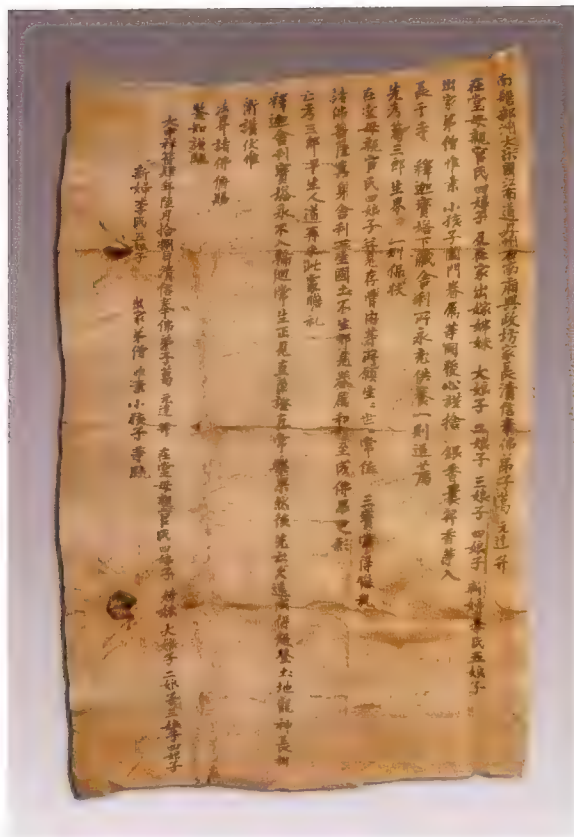 南贍部洲大宋國江南道昇州右南廂興政坊家長清信奉佛弟子葛元達并
在堂母親官氏四娘子及在家出嫁姊妹大娘子二娘子三娘子四娘子新婦李氏五娘子
出家弟僧惟素小孩子闔門眷屬等同發心捨銀香囊并香等入
長干寺釋迦寶塔下藏舍利所永充供養一則追薦
先考葛三郎生界一則保扶
在堂母親官氏四娘子并見存骨肉等所願生世常值三寶常得
諸佛舍利國土不生邪見眷屬和成佛
亡考三郎早生人道再來此處瞻礼
釋迦舍利寶塔永不入輪迴常生正見直至證真常樂果然後先亡久遠得超土地龍神長
衛護伏惟
諸佛俯賜
鑒知謹疏
大中祥符肆年陸月拾捌日清信奉佛弟子葛元達并在堂母親官氏四娘子姊妹大娘子二娘子三娘子四娘子
新婦李氏五娘子出家弟僧惟素小孩子等疏